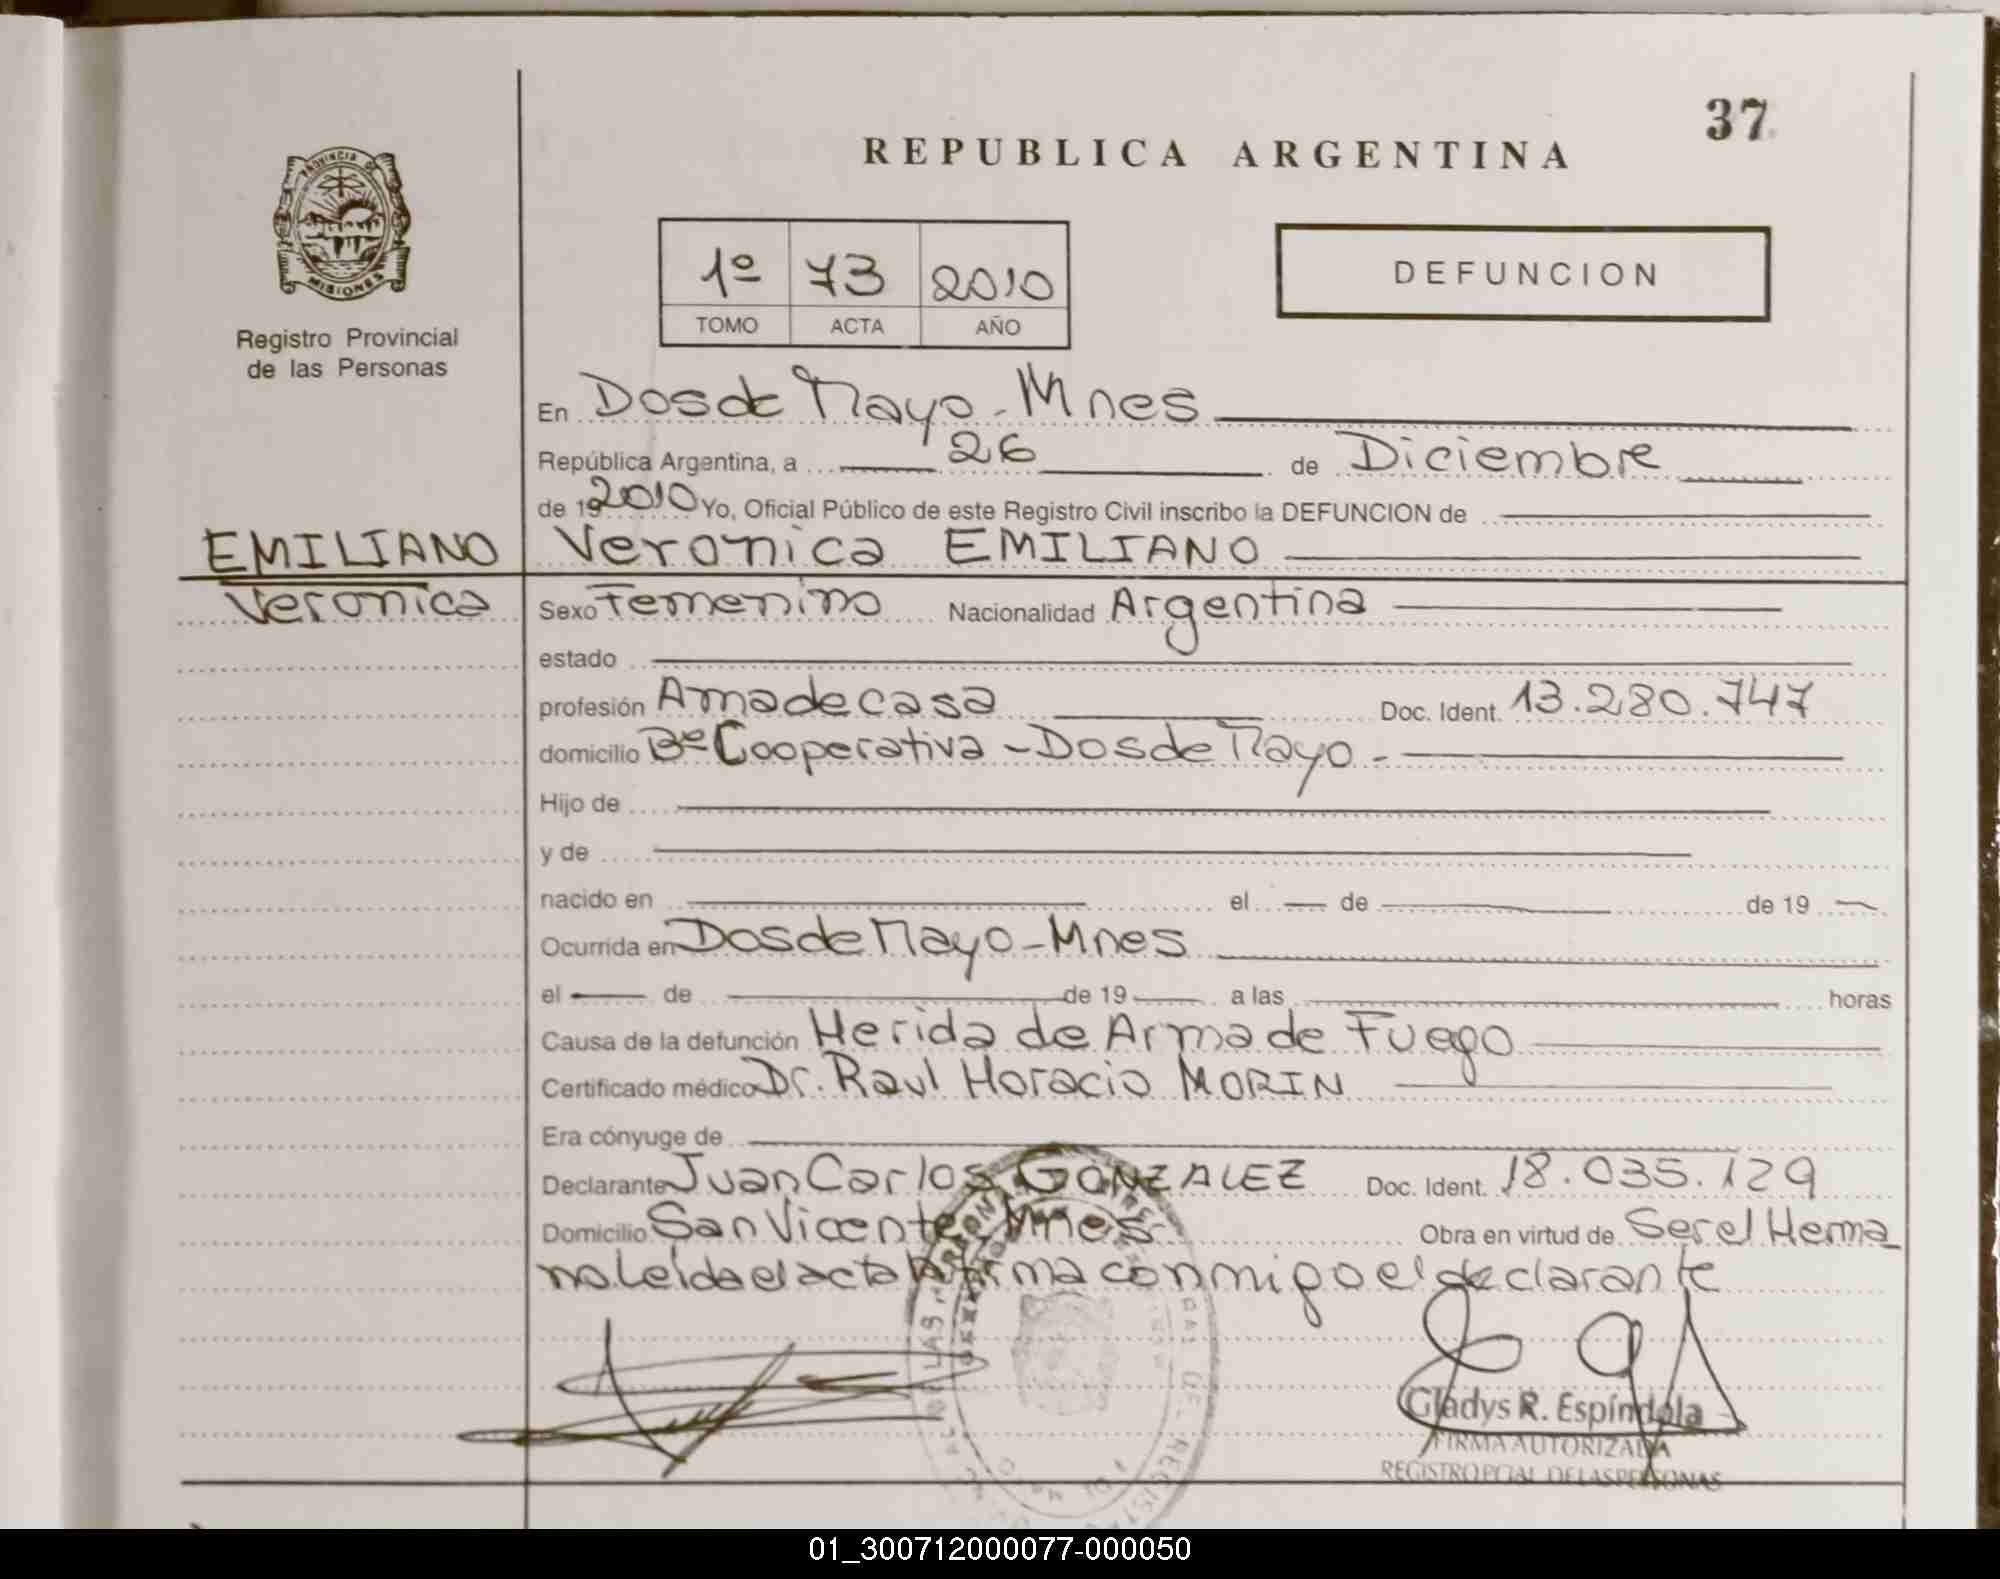 37
REPUBLICA ARGENTINA
PROVINCIA DE
MISIONES
Registro Provincial
de las Personas
1º 73 2010
TOMO ACTA AÑO
DEFUNCION
En Dos de Mayo - Mnes
República Argentina, a 26 de Diciembre
de 192010 Yo, Oficial Público de este Registro Civil inscribo la DEFUNCION de
EMILIANO Veronica EMILIANO
Veronica Sexo Femenino Nacionalidad Argentina
estado
profesión Ama de casa Doc. Ident. 13.280.747
domicilio Bº Cooperativa - Dos de Mayo -
Hijo de
y de
nacido en el de de 19
Ocurrida en Dos de Mayo - Mnes
el de de 19 a las horas
Causa de la defunción Herida de Arma de Fuego
Certificado médico Dr. Raul Horacio MORIN
Era cónyuge de
Declarante Juan Carlos GONZALEZ Doc. Ident. 18.035.129
Domicilio San Vicente, Mnes Obra en virtud de Ser el Herma
no Leida el acta la firma conmigo el declarante
Gladys R. Espíndola
FIRMA AUTORIZADA
REGISTRO PCIAL DE LAS PERSONAS
01_300712000077-000050